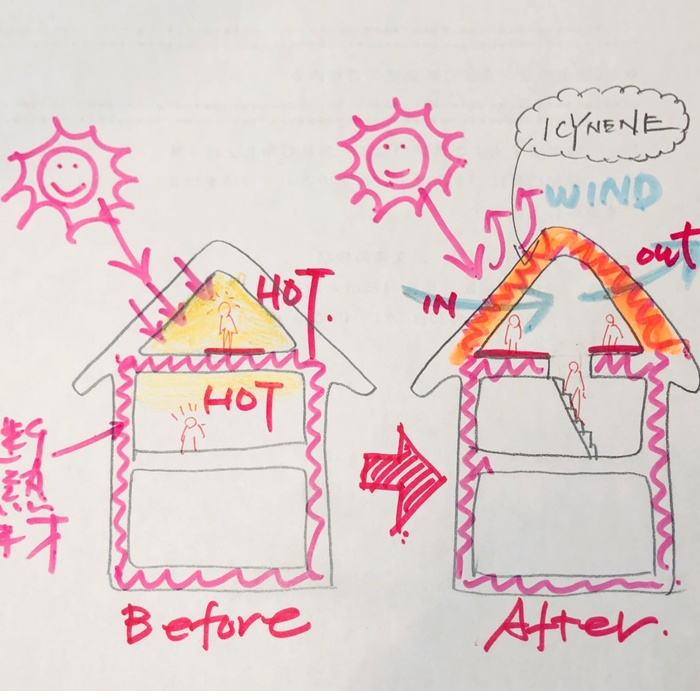 ICYNENE
WIND
HOT.
IN
out
HOT
断
熱
材
Before
After.